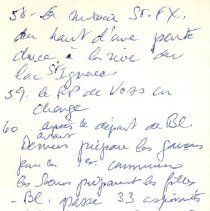 58 - La mission St. FX.
du haut d'une pente
douce, à la rive du
lac St Ignace
59. le RP de Voss en
charge
60. après le départ de Bl
avant
Demers prépare les garçons
pour la 1re communion
les Soeurs préparent les filles
- Bl. passe 33 aspirants